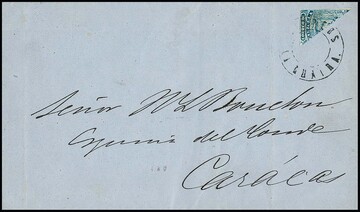 LA GUAIRA.
Señor M L Boulton.
Esquina del Conde
Carácas